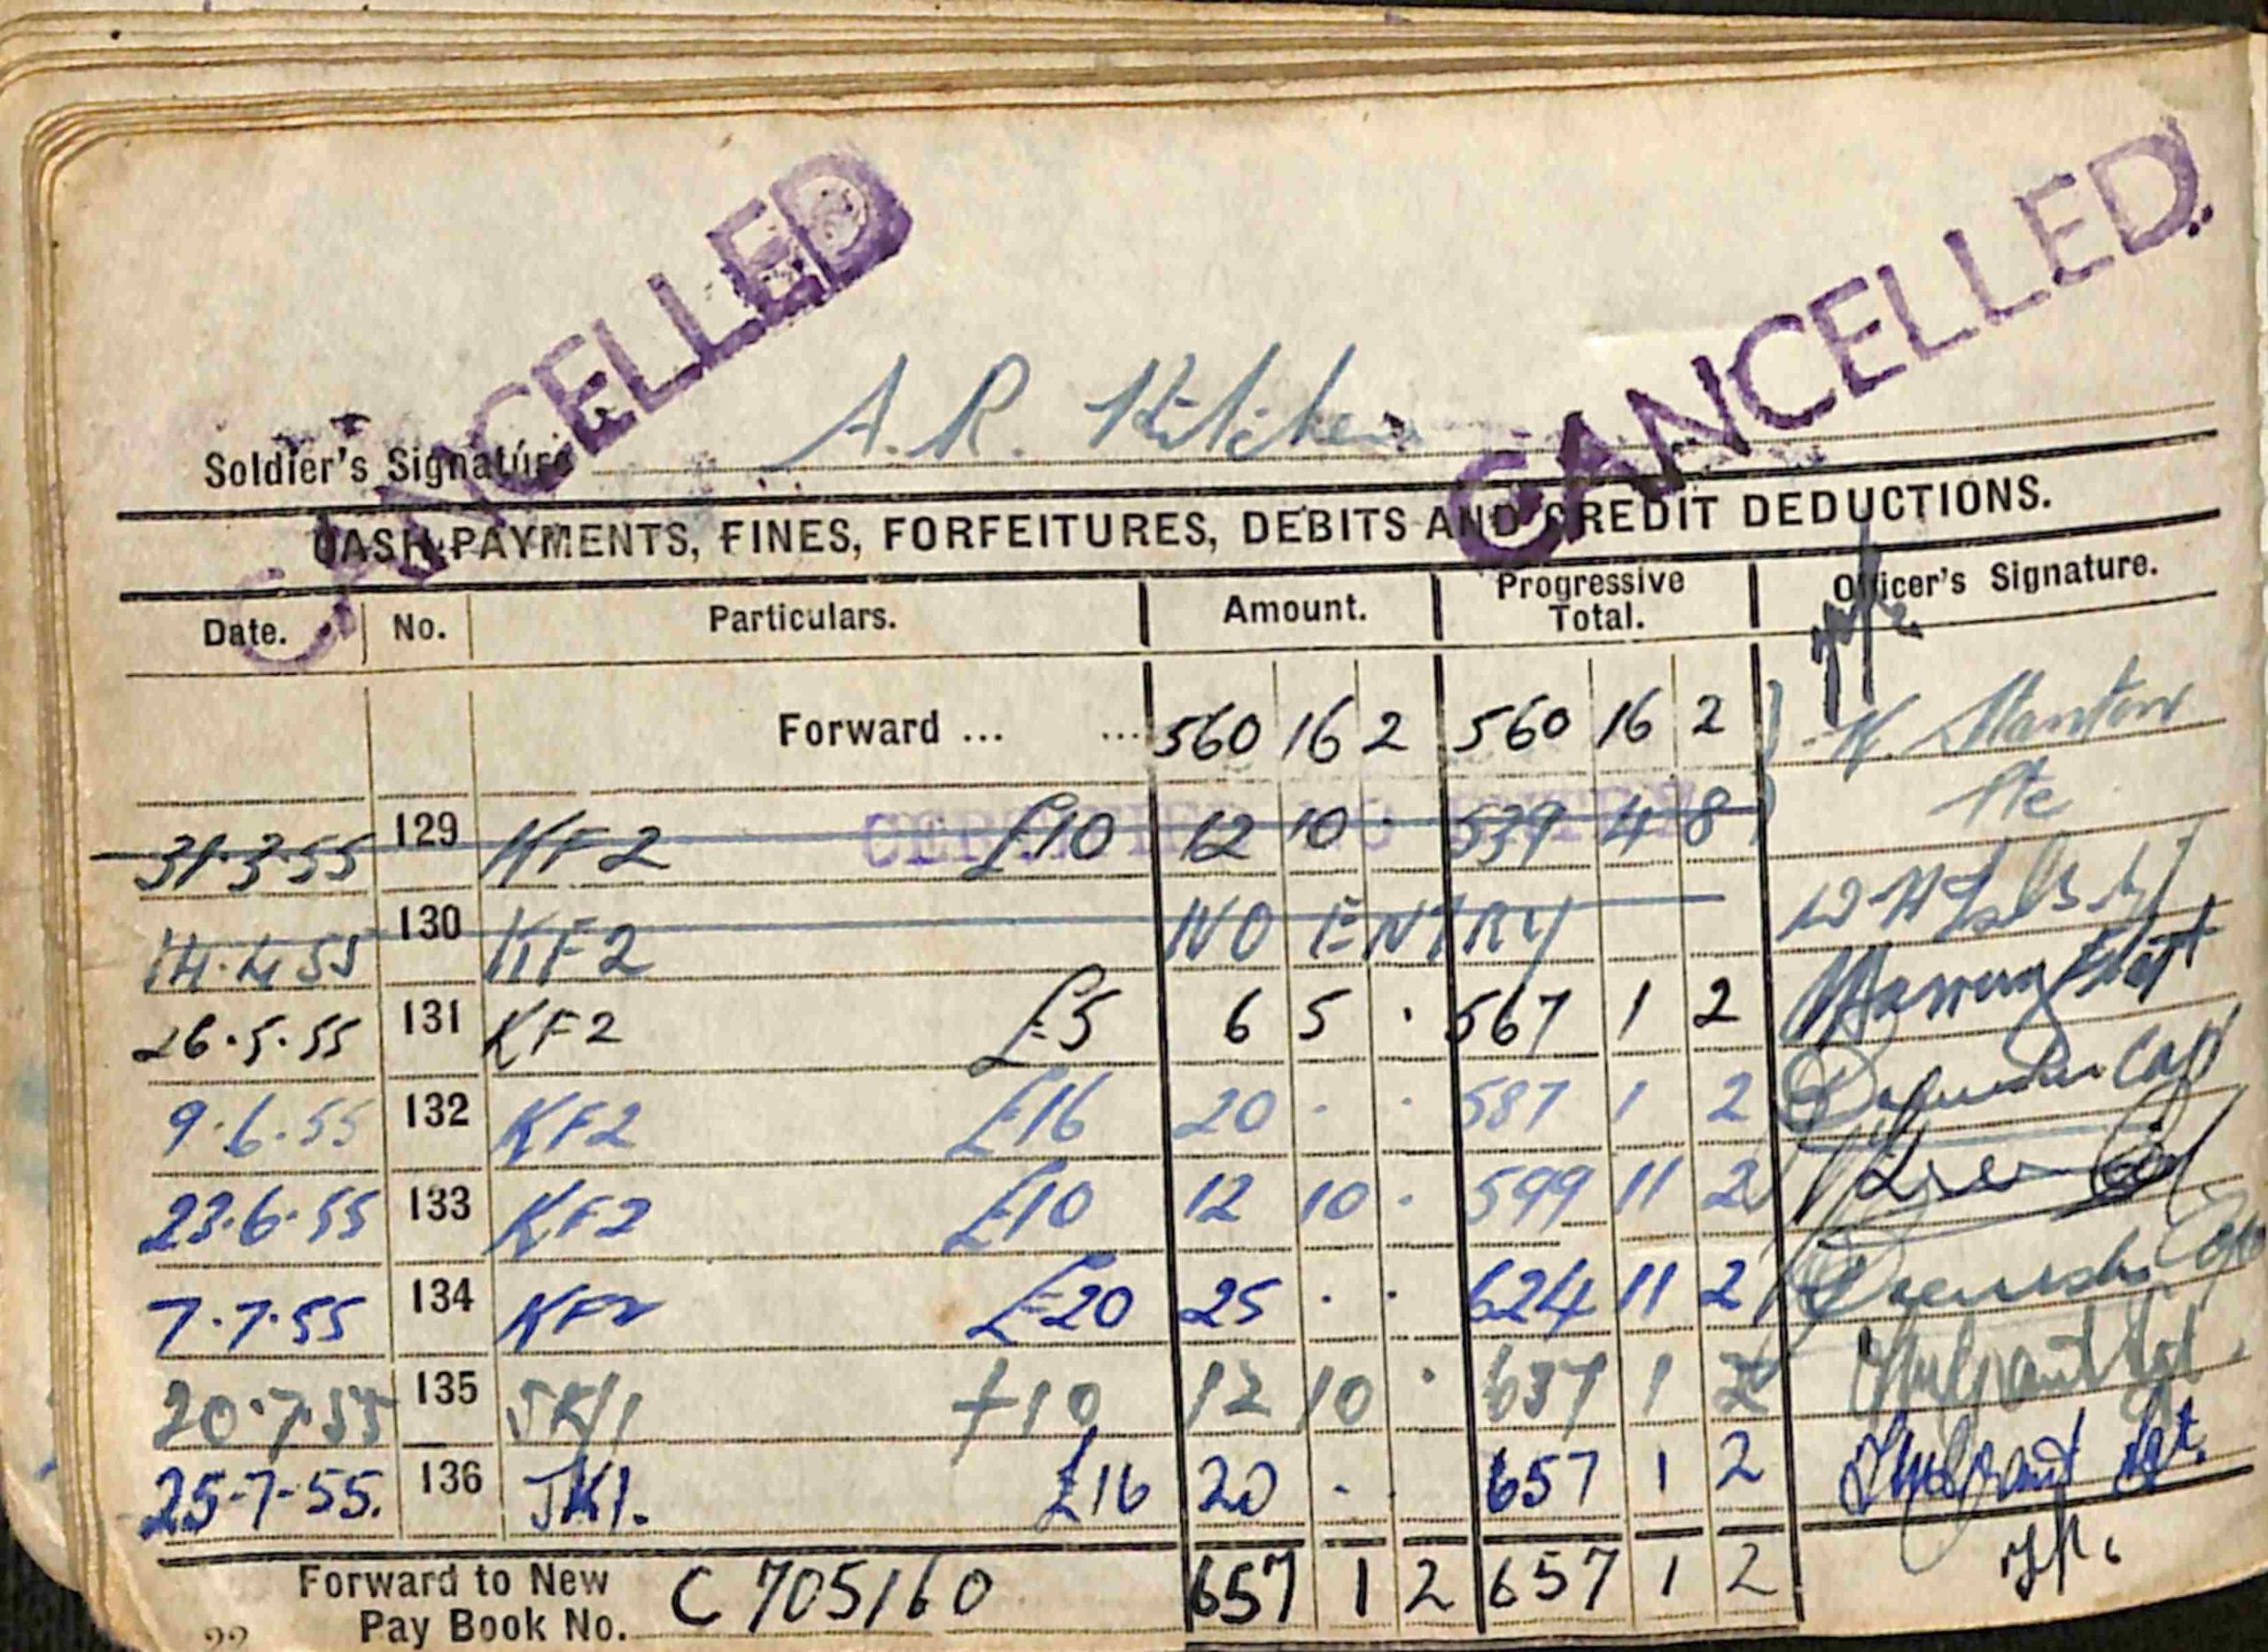 CANCELLED
CANCELLED.
Soldier's Signature A. R. Kitchen
CASH PAYMENTS, FINES, FORFEITURES, DEBITS AND CREDIT DEDUCTIONS.
Date. No. Particulars. Amount. Progressive Total. Officer's Signature.
Forward ... ... 560 16 2 560 16 2 K. Stanton
Pte
CERTIFIED NO ENTRY
31.3.55 129 KF2 £10 12 10 . 539 4 8
14.4.55 130 KF2 NO ENTRY
26.5.55 131 KF2 £5 6 5 . 567 1 2
9.6.55 132 KF2 £16 20 . . 587 1 2 Capt
23.6.55 133 KF2 £10 12 10 . 599 11 2
7.7.55 134 KF2 £20 25 . . 624 11 2
20.7.55 135 JK11 £10 12 10 . 637 1 2 Sgt.
25-7-55. 136 JK1. £16 20 . . 657 1 2 Sgt.
Forward to New Pay Book No. C 705160 657 1 2 657 1 2
22